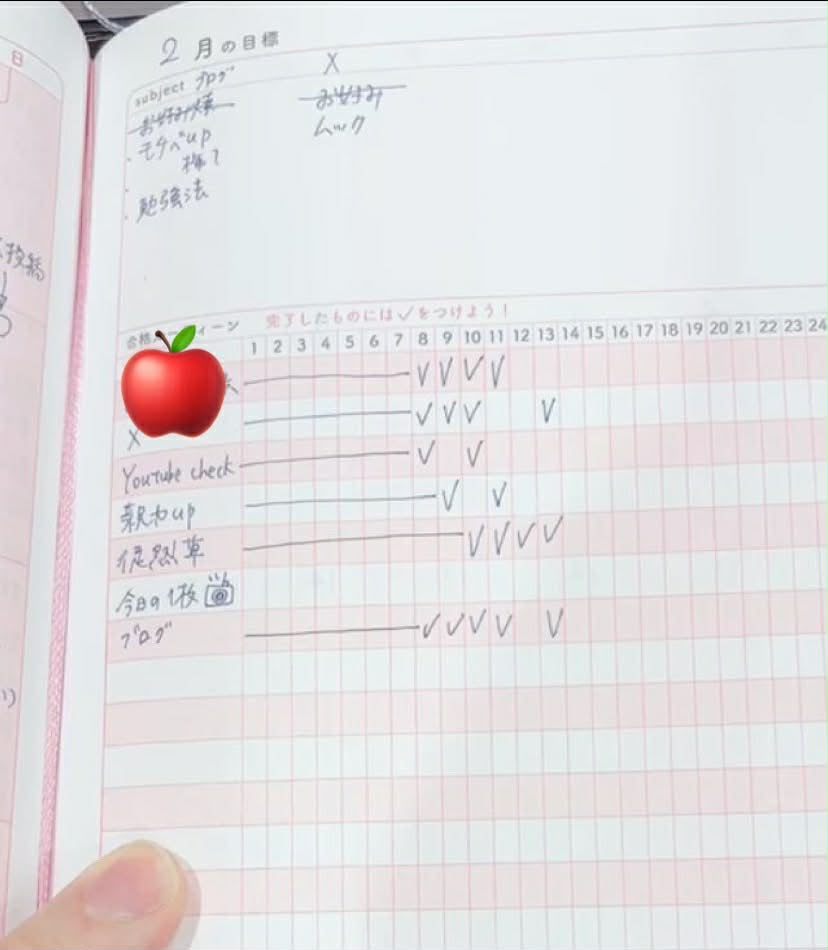 日
2月の目標
subject ブログ
X
お好み焼
お好み
モチベup
ムック
勉強法
完了したものには✓をつけよう！
合格 ィーン
1 2 3 4 5 6 7 8 9 10 11 12 13 14 15 16 17 18 19 20 21 22 23 24
✓ ✓ ✓ ✓
X ✓ ✓ ✓ ✓
Youtube check ✓ ✓
釈力up ✓ ✓
徒然草 ✓ ✓ ✓ ✓
今日の1枚
ブログ ✓ ✓ ✓ ✓ ✓